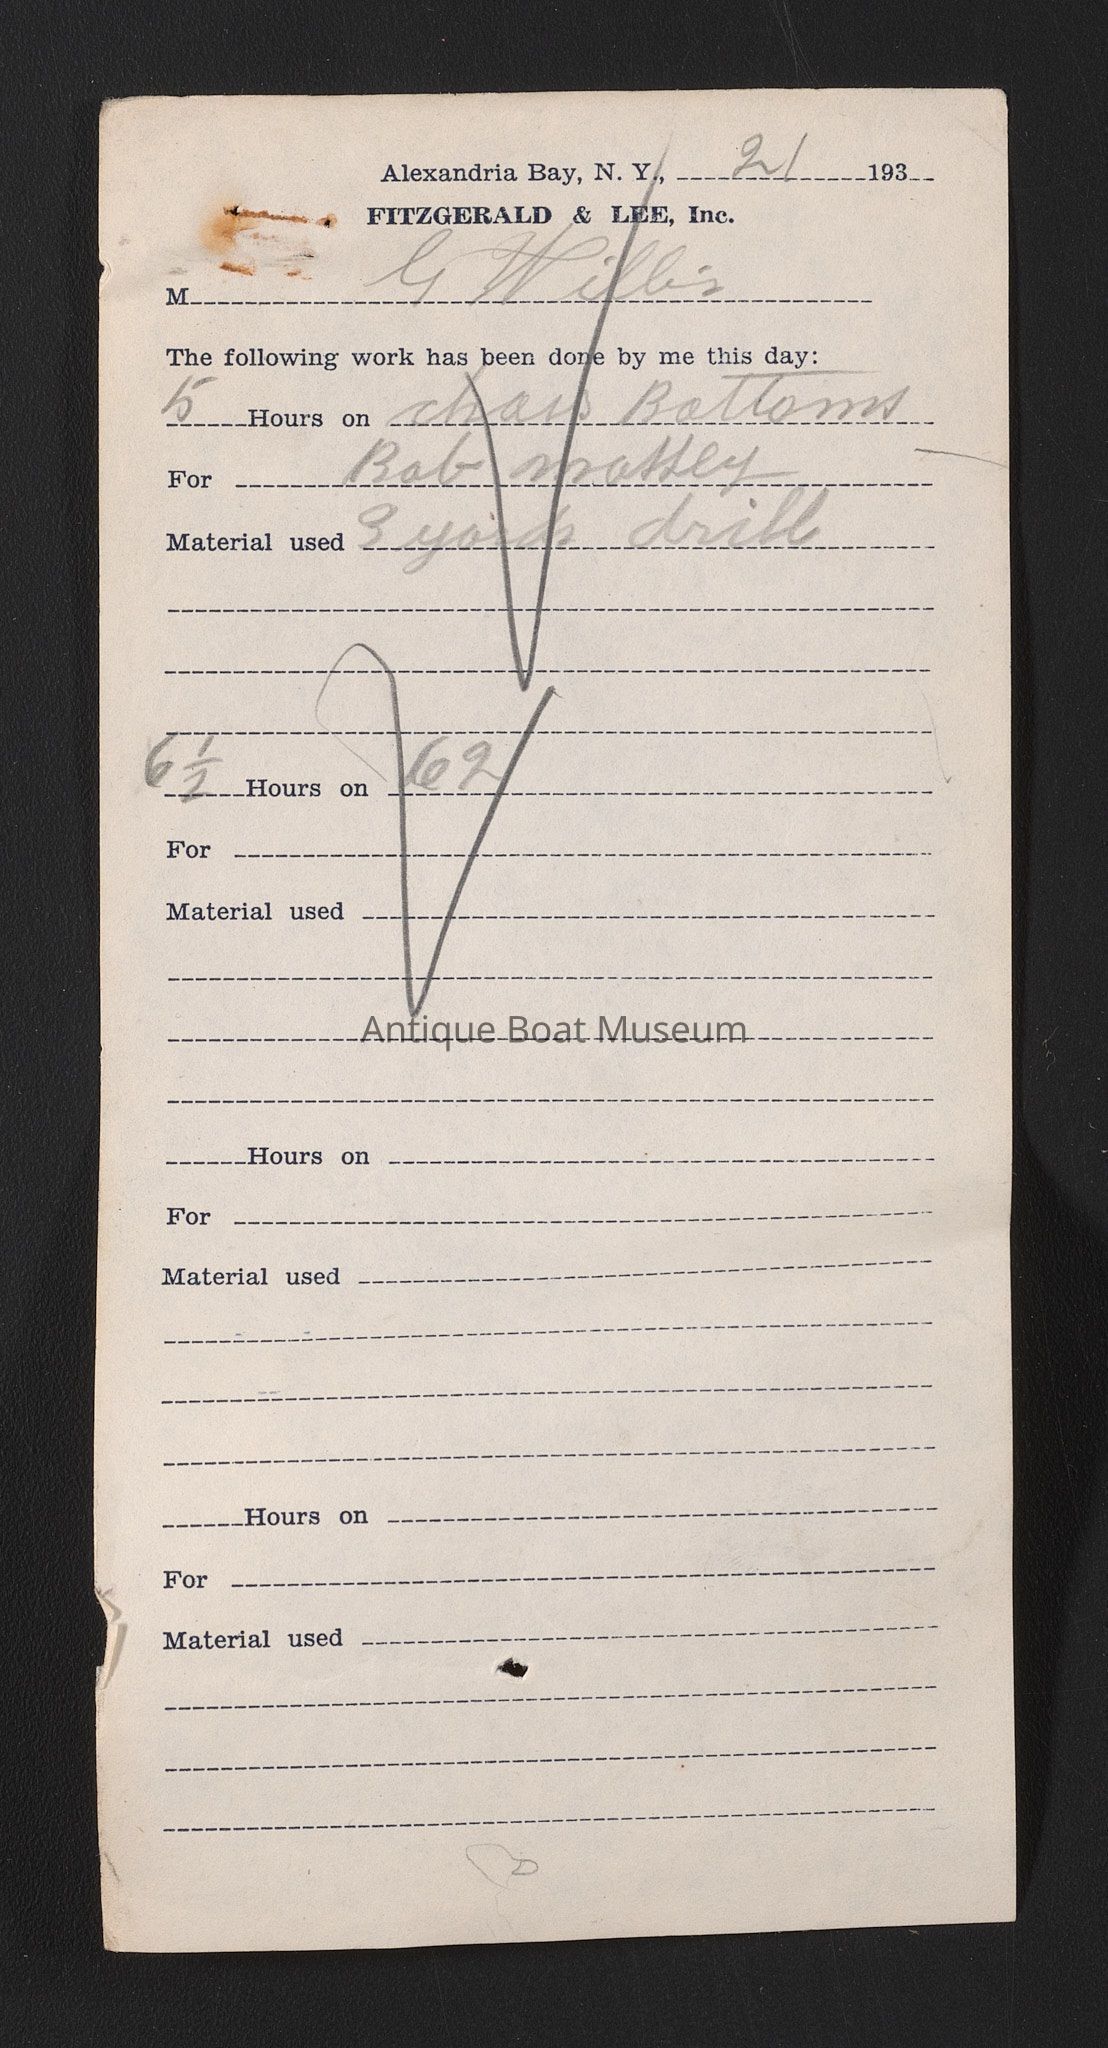 Alexandria Bay, N. Y., 21 193
FITZGERALD & LEE, Inc.
M G Willis
The following work has been done by me this day:
5 Hours on chair Bottoms
For Bob
Material used 3 yards drill
6 1/2 Hours on 62
For
Material used
Antique Boat Museum
Hours on
For
Material used
Hours on
For
Material used